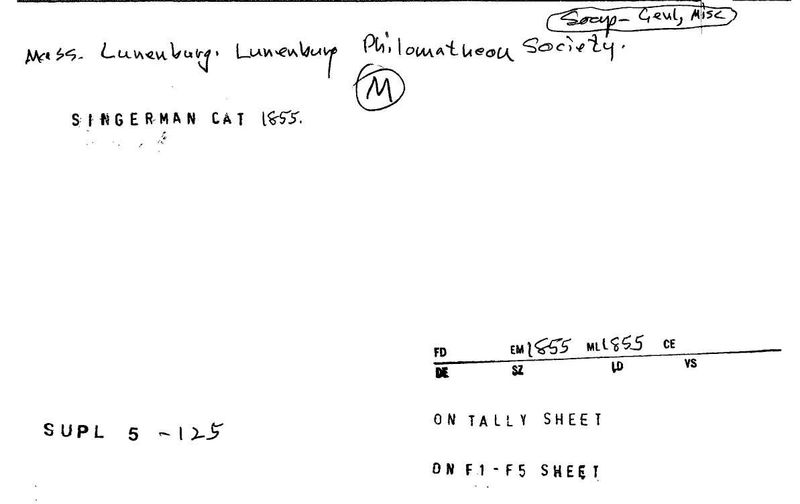 Socy- Genl, Misc
Mass. Lunenburg. Lunenburg Philomathean Society.
M
SINGERMAN CAT 1855.
FD EM 1855 ML 1855 CE
DE SZ LD VS
SUPL 5 -125
ON TALLY SHEET
ON F1-F5 SHEET